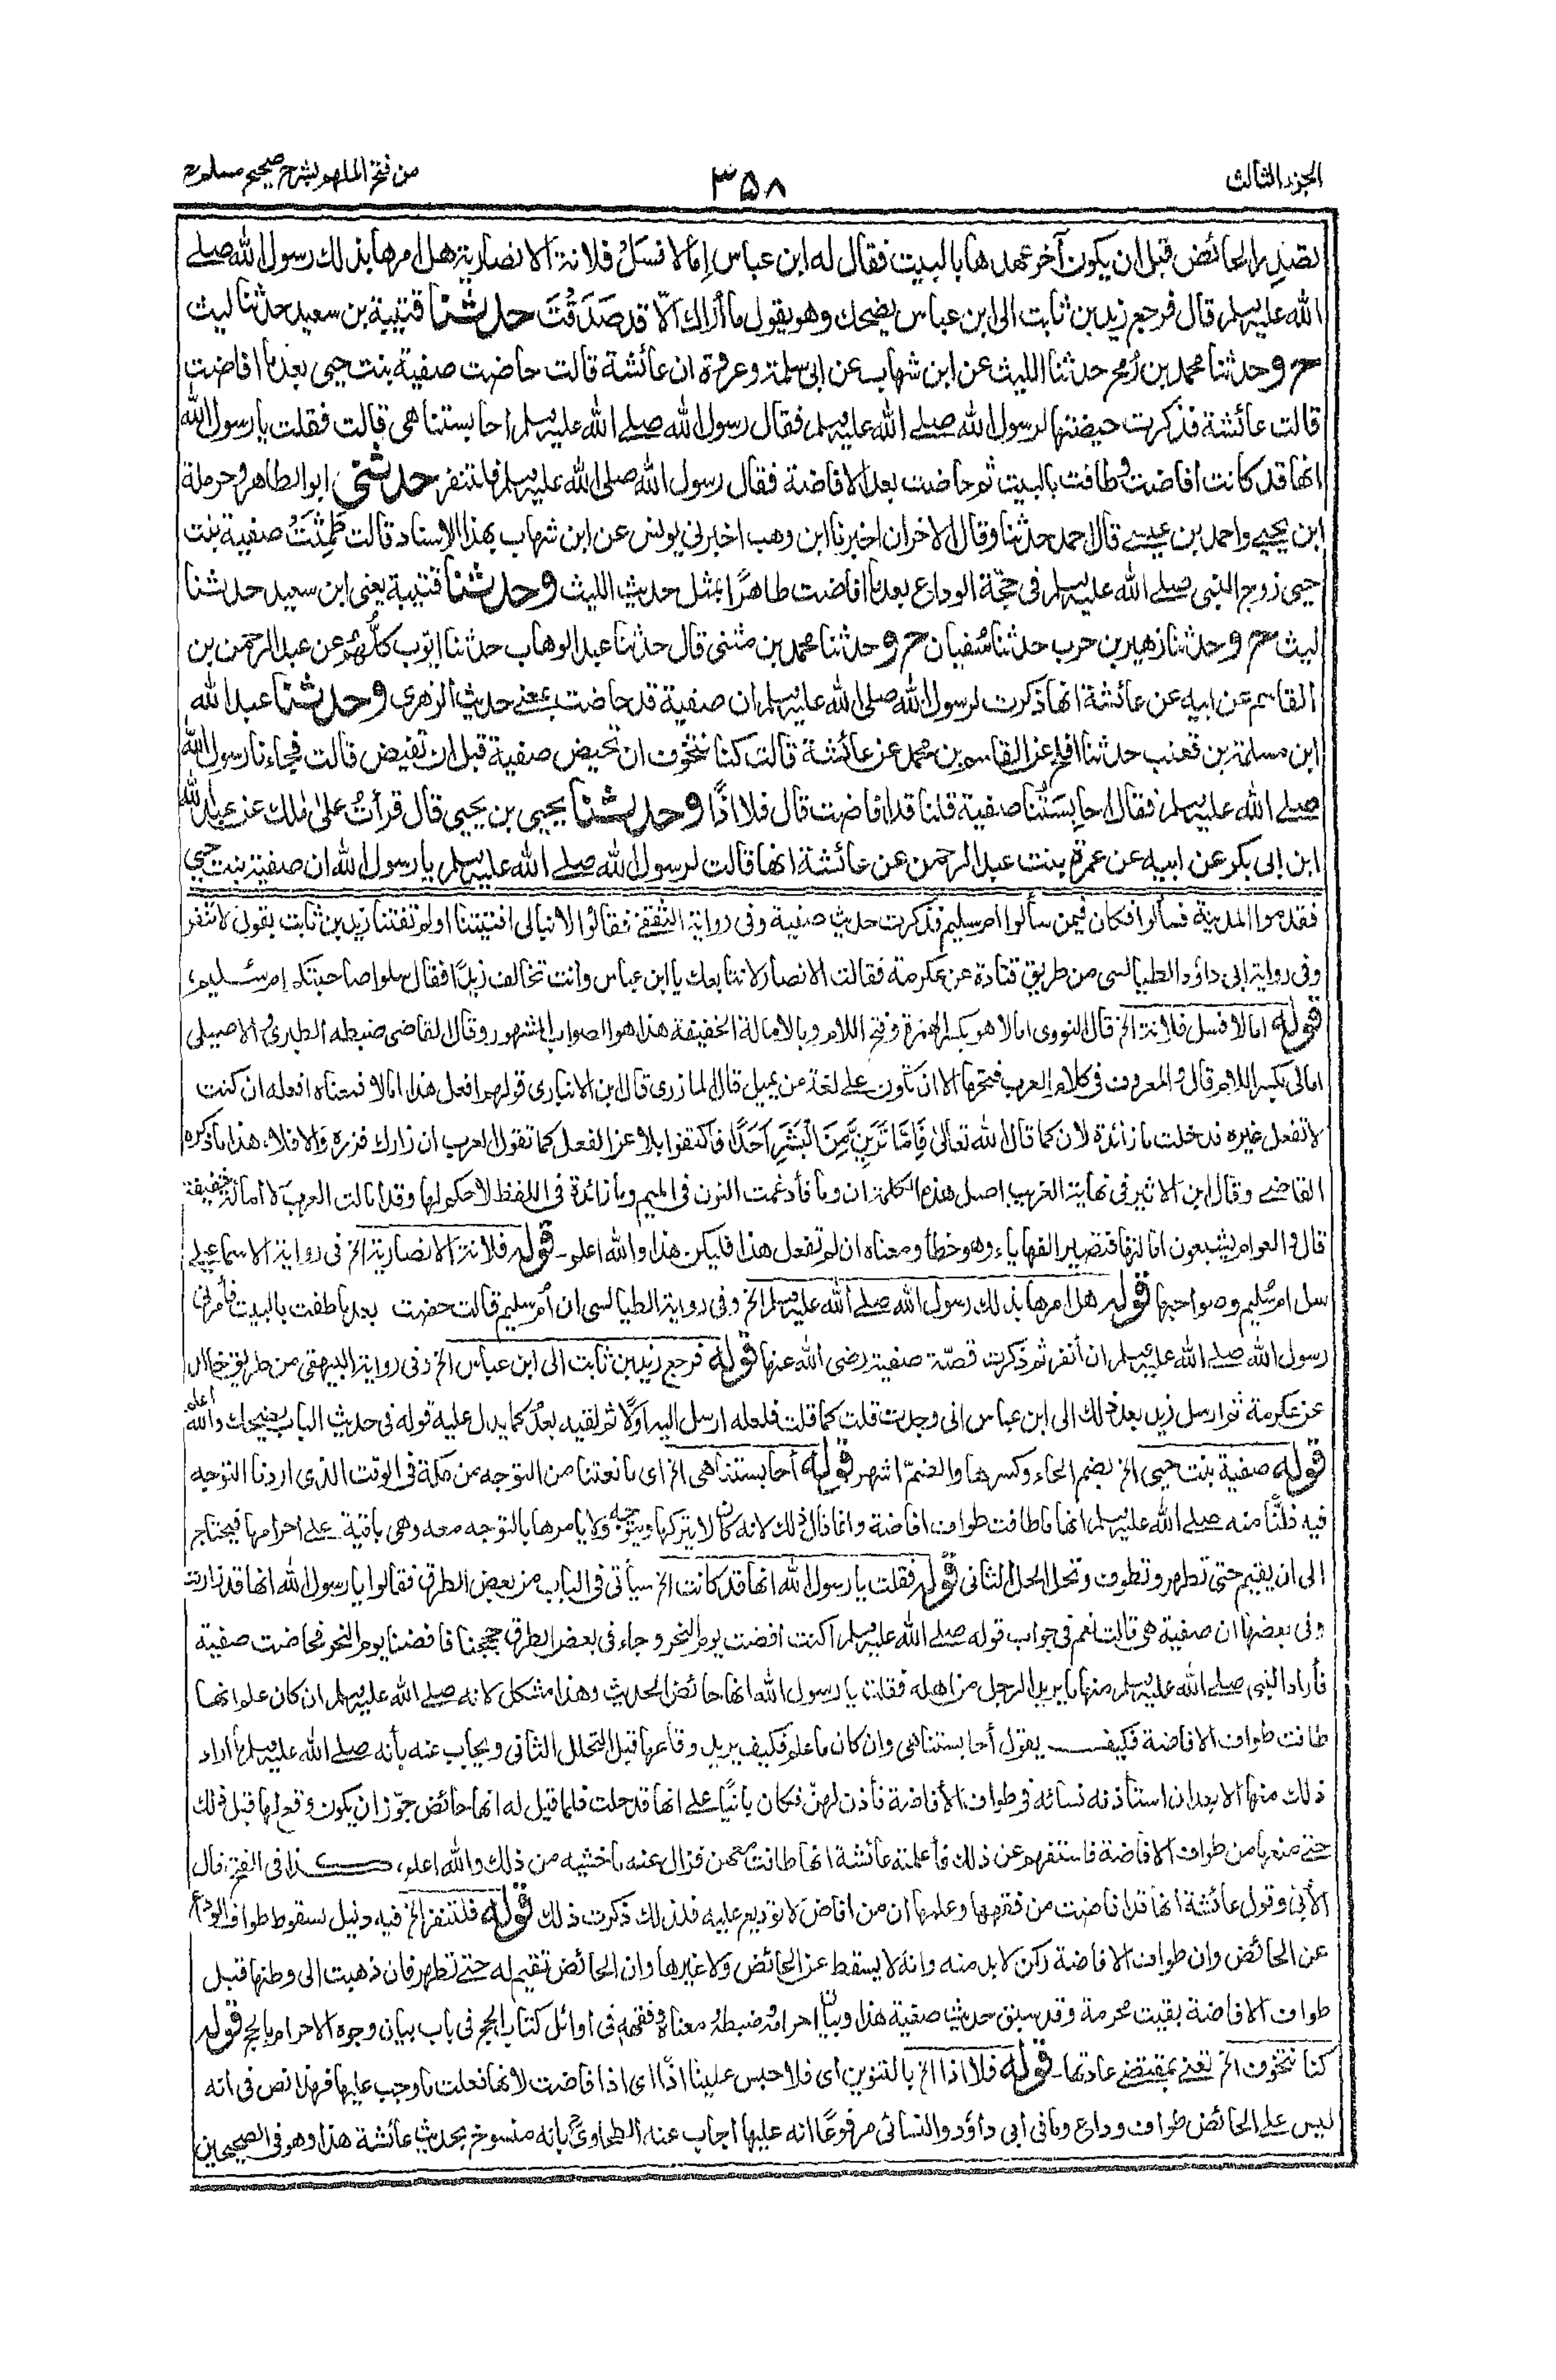 الجزء الثالث
٣٥٨
من فتح الملهم بشرح صحيح مسلم
تصدر الحائض قبل ان يكون آخر عهدها بالبيت فقال له ابن عباس إمّا لا فسَلْ فلانة الانصارية هل امرها بذلك رسول الله صلے
الله عليه وسلم قال فرجع زيد بن ثابت الى ابن عباس يضحك وهو يقول ما أراك الّا قد صَدَقْتَ حدثنا قتيبة بن سعيد حدثنا ليث
ح وحدثنا محمد بن رُمح حدثنا الليث عن ابن شهاب عن ابى سلمة وعروة ان عائشة قالت حاضت صفية بنت حيى بعد ما افاضت
قالت عائشة فذكرت حيضتها لرسول الله صلے الله عليه وسلم فقال رسول الله صلے الله عليه وسلم أحابستنا هى قالت فقلت يا رسول الله
انها قد كانت افاضت وطافت بالبيت ثم حاضت بعد الافاضة فقال رسول الله صلى الله عليه وسلم فلتنفر حدثنى ابو الطاهر وحرملة
ابن يحيى واحمد بن عيسى قال احمد حدثنا وقال الاخران اخبرنا ابن وهب اخبرنى يونس عن ابن شهاب بهذا الاسناد قالت طَمِثَتْ صفية بنت
حيى زوج النبى صلے الله عليه وسلم فى حجّة الوداع بعد ما افاضت طاهرًا بمثل حديث الليث وحدثنا قتيبة يعنى ابن سعيد حدثنا
ليث ح وحدثنا زهير بن حرب حدثنا سُفيان ح وحدثنا محمد بن مثنى قال حدثنا عبد الوهاب حدثنا ايّوب كلُّهم عن عبد الرحمن بن
القاسم عن ابيه عن عائشة انها ذكرت لرسول الله صلى الله عليه وسلم ان صفية قد حاضت بمعنى حديث الزهرى وحدثنا عبد الله
ابن مسلمة بن قعنب حدثنا افلح عن القاسم بن محمد عن عائشة قالت كنا نتخوف ان تحيض صفية قبل ان تفيض قالت فجاءنا رسول الله
صلے الله عليه وسلم فقال احابِسَتُنا صفية قلنا قد افاضت قال فلا اذًا وحدثنا يحيى بن يحيى قال قرأتُ على مٰلك عن عبد الله
ابن ابى بكر عن ابيه عن عمرة بنت عبد الرحمن عن عائشة انها قالت لرسول الله صلے الله عليه وسلم يا رسول الله ان صفية بنت حيى
فقدموا المدينة فسألوا فكان فيمن سألوا ام سليم فذكرت حديث صفية وفى رواية الثقفى فقالوا لا نبالى افتيتنا او لم تفتنا زيد بن ثابت يقول لا تنفر
وفى رواية ابى داؤد الطيالسى من طريق قتادة عن عكرمة فقالت الانصار لا نتابعك يا ابن عباس وانت تخالف زيدًا فقال سلوا صاحبتكم ام سليم،
قوله اما لا فسل فلانة الخ قال النووى اما لا هو بكسر الهمزة وفتح اللام وبالامالة الخفيفة هذا هو الصواب المشهور وقال القاضى ضبطه الطبرى والاصيلى
امالى بكسر اللام قال والمعروف فى كلام العرب فتحها الا ان تكون على لغة من يميل قال المازرى قال ابن الانبارى قولهم افعل هذا اما لا فمعناه افعله ان كنت
لا تفعل غيره فدخلت ما زائدة لان كما قال الله تعالى فَاِمَّا تَرَيِنَّ مِنَ الْبَشَرِ اَحَدًا فاكتفوا بلا عن الفعل كما تقول العرب ان زارك فزره والا فلا، هذا ما ذكره
القاضى وقال ابن الاثير فى نهاية الغريب اصل هذه الكلمة ان وما فأدغمت النون فى الميم وما زائدة فى اللفظ لا حكم لها وقد امالت العرب لا امالة خفيفة
قال والعوام يشبعون امالتها فتصير الفها ياء وهو خطأ ومعناه ان لم تفعل هذا فليكن هذا والله اعلم۔ قوله فلانة الانصارية الخ فى رواية الاسماعيلى
سل ام سُليم وصواحبها قوله هل امرها بذلك رسول الله صلے الله عليه وسلم الخ وفى رواية الطيالسى ان ام سليم قالت حضت بعد ما طفت بالبيت فأمرنى
رسول الله صلے الله عليه وسلم ان أنفر ثم ذكرت قصّة صفية رضى الله عنها قوله فرجع زيد بن ثابت الى ابن عباس الخ وفى رواية البيهقى من طريق خالد
عن عكرمة ثم ارسل زيد بعد ذلك الى ابن عباس انى وجدت قلت كما قلت فلعله ارسل اليه اوّلًا ثم لقيه بعدُ كما يدل عليه قوله فى حديث الباب يضحك والله اعلم
قوله صفية بنت حيى الخ بضم الحاء وكسرها والضمّ اشهر قوله أحابستنا هى الخ اى مانعتنا من التوجه من مكة فى الوقت الذى اردنا التوجه
فيه ظنًّا منه صلے الله عليه وسلم انها ما طافت طواف افاضة وانما قال ذلك لانه كان لا يتركها ويتوجه ولا يأمرها بالتوجه معه وهى باقية على احرامها فيحتاج
الى ان يقيم حتى تطهر وتطوف وتحل الحل الثانى قوله فقلت يا رسول الله انها قد كانت الخ سيأتى فى الباب من بعض الطرق فقالوا يا رسول الله انها قد زارت
وفى بعضها ان صفية هى قالت نعم فى جواب قوله صلے الله عليه وسلم اكنت افضت يوم النحر وجاء فى بعض الطرق حججنا فافضنا يوم النحر فحاضت صفية
فأراد النبى صلے الله عليه وسلم منها ما يريد الرجل من اهله فقلت يا رسول الله انها حائض الحديث وهذا مشكل لانه صلے الله عليه وسلم ان كان علم انها
طافت طواف الافاضة فكيف يقول أحابستنا هى وان كان ما علم فكيف يريد وقاعها قبل التحلل الثانى ويجاب عنه بأنه صلے الله عليه وسلم ما أراد
ذلك منها الا بعد ان استأذنه نسائه فى طواف الافاضة فأذن لهنّ فكان بانيًا على انها قد حلت فلما قيل له انها حائض جوّز ان يكون وقع لها قبل ذلك
حتى منعها من طواف الافاضة فاستفهم عن ذلك فأعلمته عائشة انها طافت معهن فزال عنه ما خشيه من ذلك والله اعلم، كذا فى الفتح، قال
الأبى وقول عائشة انها قد افاضت من فقهها وعلمها ان من افاض لا توديع عليه فلذلك ذكرت ذلك قوله فلتنفر الخ فيه دليل لسقوط طواف الوداع
عن الحائض وان طواف الافاضة ركن لا بد منه وانه لا يسقط عن الحائض ولا غيرها وان الحائض تقيم له حتى تطهر فان ذهبت الى وطنها قبل
طواف الافاضة بقيت محرمة وقد سبق حديث صفية هذا وبيان احرامه وضبطه ومعناه وفقهه فى اوائل كتاب الحج فى باب بيان وجوه الاحرام بالحج قوله
كنا نتخوف الخ تعنى بمقتضى عادتها۔ قوله فلا اذا الخ بالتنوين اى فلا حبس علينا اذًا اى اذا افاضت لانها فعلت ما وجب عليها فهذا نص فى انه
ليس على الحائض طواف وداع وما فى ابى داؤد والنسائى مرفوعًا انه عليها اجاب عنه الطحاوى بانه منسوخ بحديث عائشة هذا وهو فى الصحيحين